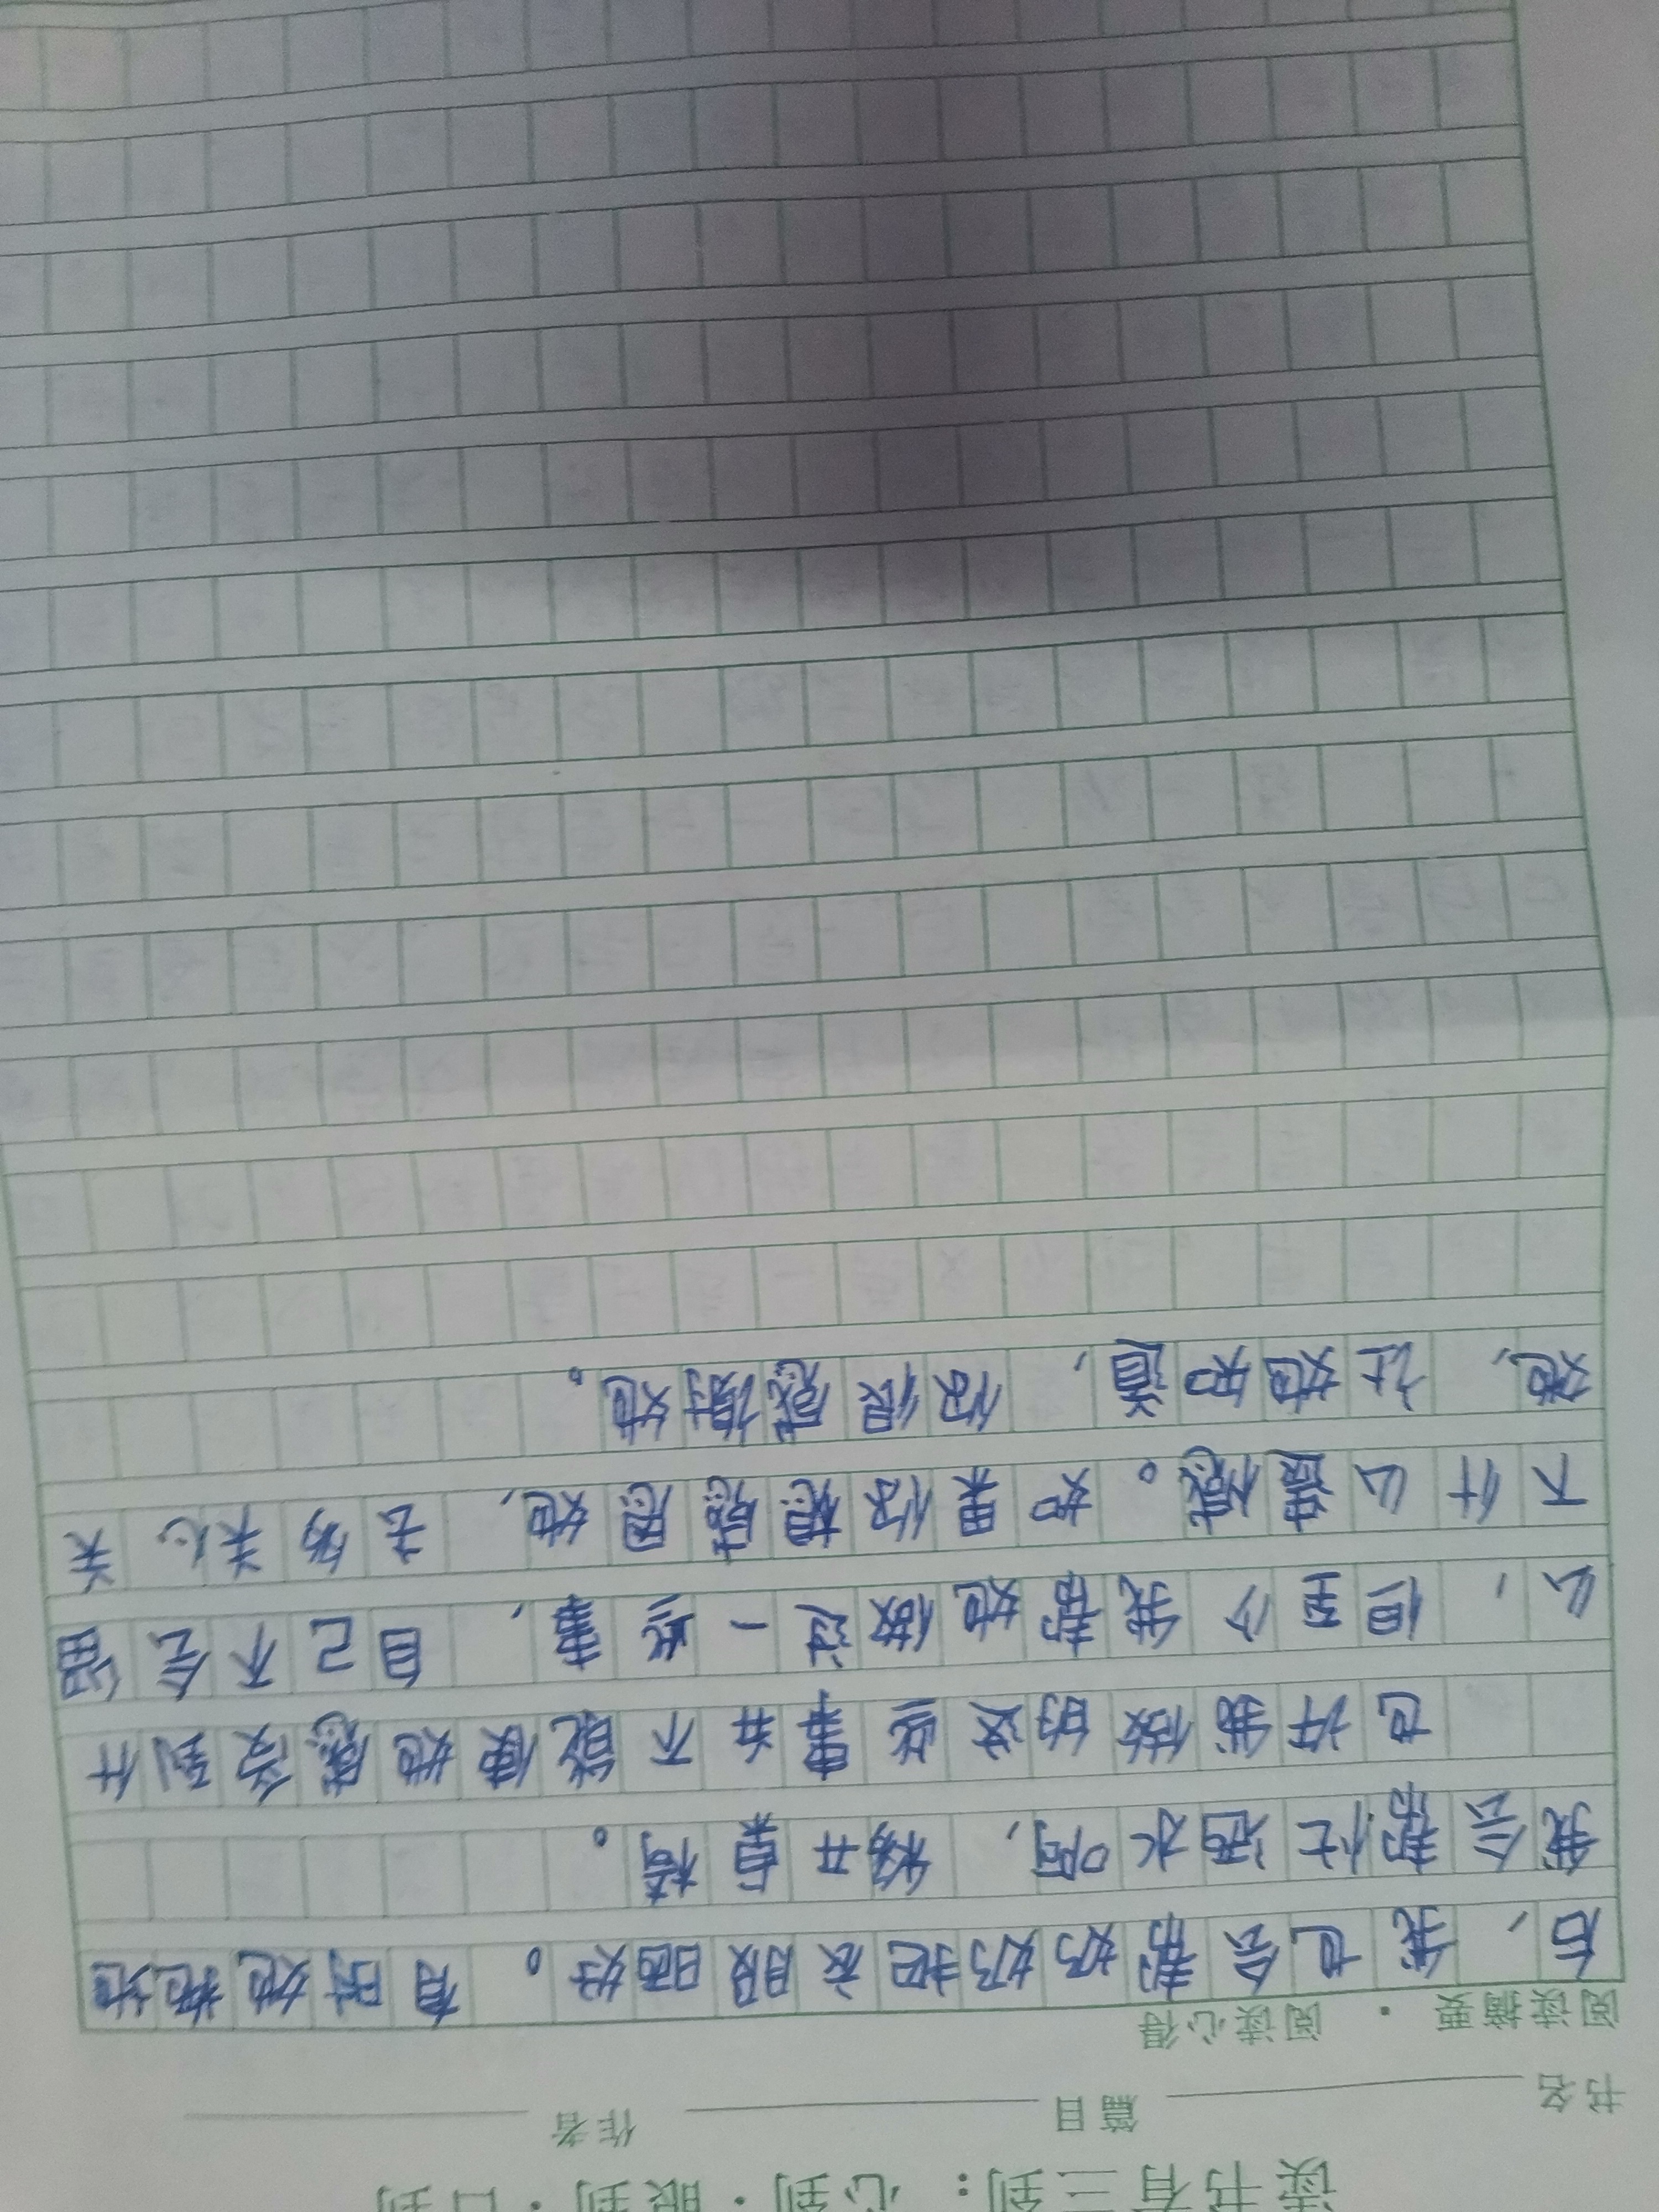 读书有三到：心到·眼到·口到
书名 篇目 作者
阅读摘要 · 阅读心得
后，我也会帮奶奶把衣服晒好。有时她拖地
我会帮忙洒水啊，移开桌椅。
也许我做的这些事并不能使她感受到什
么，但至少我帮她做过一些事，自己不会留
下什么遗憾。如果你想感恩她，去多关心关
她，让她知道，你很感谢她。